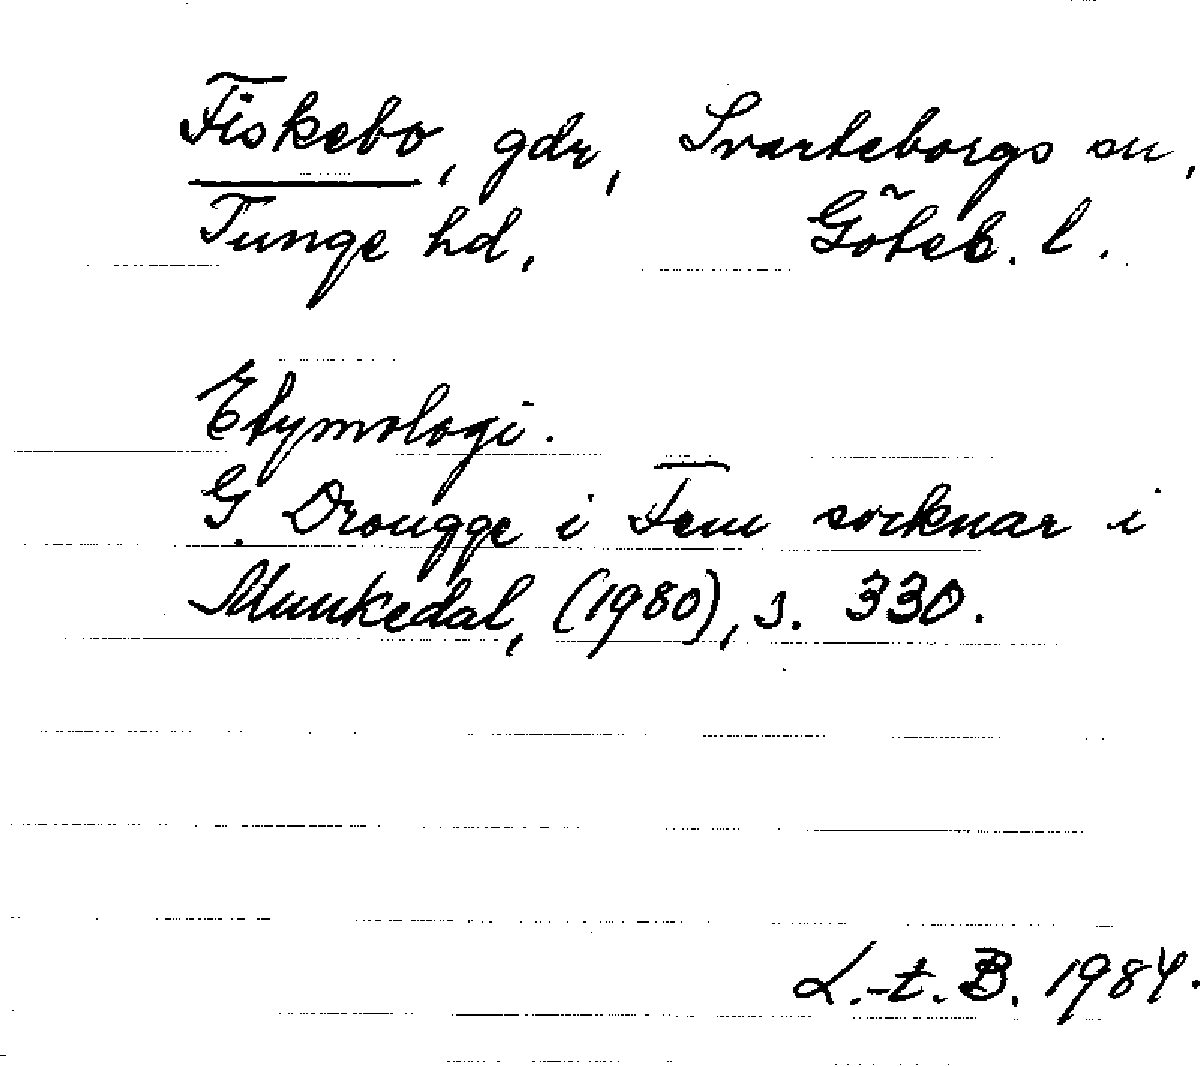 Fiskebo, gdr, Svarteborgs sn,
Tunge hd, Göteb. l.
Etymologi.
G. Drougge i Fem socknar i
Munkedal, (1980), s. 330.
L.-t. B. 1984.